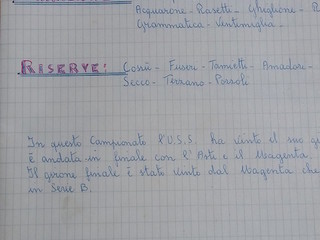 Acquarone - Rosetti - Ghiglione -
Grammatica - Ventimiglia -
RISERVE: Cossù - Fuseri - Tamietti - Amadori -
Secco - Terrano - Possoli
In questo Campionato l'U.S.S. ha vinto il suo
è andata in finale con l'Asti e il Magenta.
Il girone finale è stato vinto dal Magenta che
in Serie B.